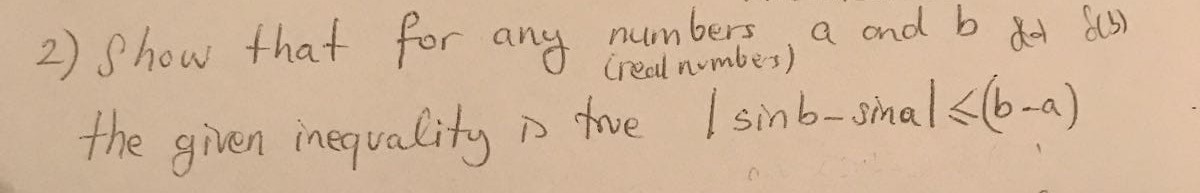 2) Show that for any numbers a and b
(real numbers)
the given inequality is true |sinb-sina|≤(b-a)